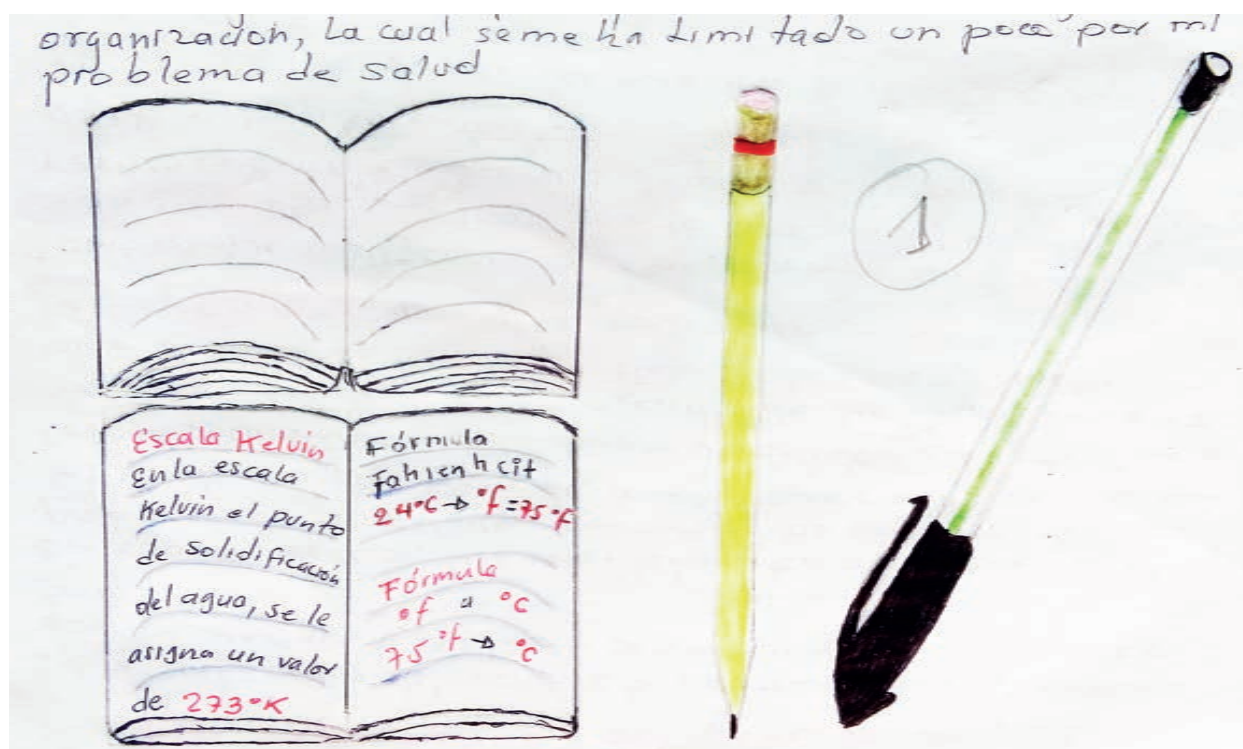 organización, La cual seme ha Limitado un poco por mi
problema de salud
1
Escala Kelvin
En la escala
Kelvin el punto
de solidificación
del agua, se le
asigna un valor
de 273°K
Fórmula
Fahrenheit
24°C → °f = 75°f
Fórmula
°f a °C
75°f → °C